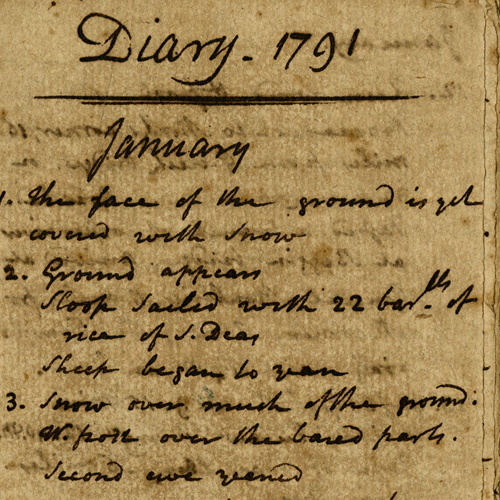 Diary - 1791
January
1. The face of the ground is yet
covered with Snow
2. Ground appears
Sloop Sailed with 22 barlls. of
rice of S. Deas
Sheep began to yean
3. Snow over much of the ground.
W. frost over the bared parts.
Second ewe yeaned